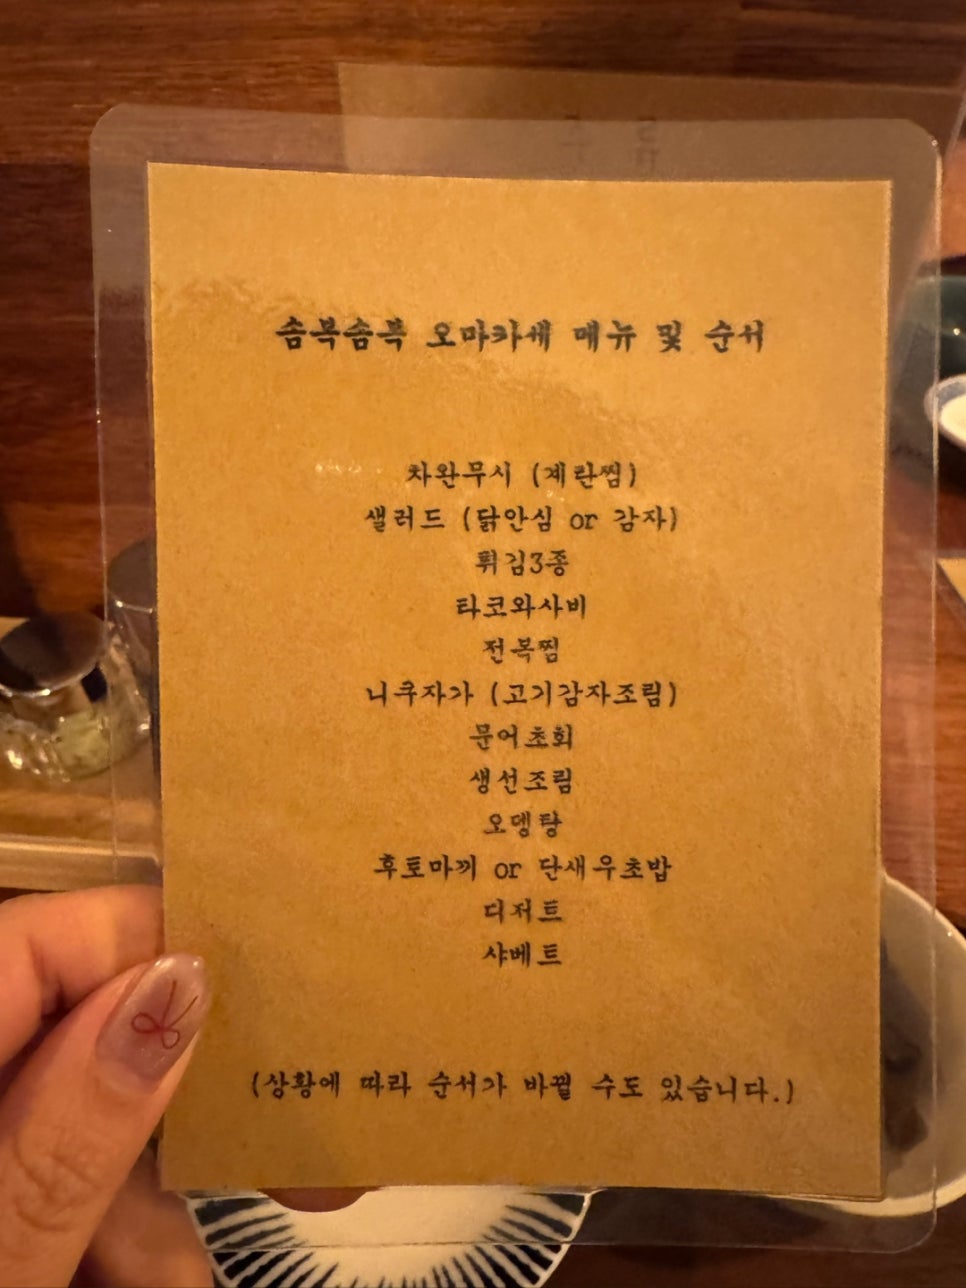 솜복솜복 오마카세 메뉴 및 순서
차완무시 (계란찜)
샐러드 (닭안심 or 감자)
튀김3종
타코와사비
전복찜
니쿠자가 (고기감자조림)
문어초회
생선조림
오뎅탕
후토마끼 or 단새우초밥
디저트
샤베트
(상황에 따라 순서가 바뀔 수도 있습니다.)